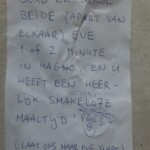 BORD EN SCHAAL
BEIDE (APART VAN
ELKAAR) EVE
1 of 2 MINUTE
IN MAGNO, EN U
HEEFT EEN HEER-
LIJK SMAKELOZE
MAALTYD!
(LAAT ONS MAAR